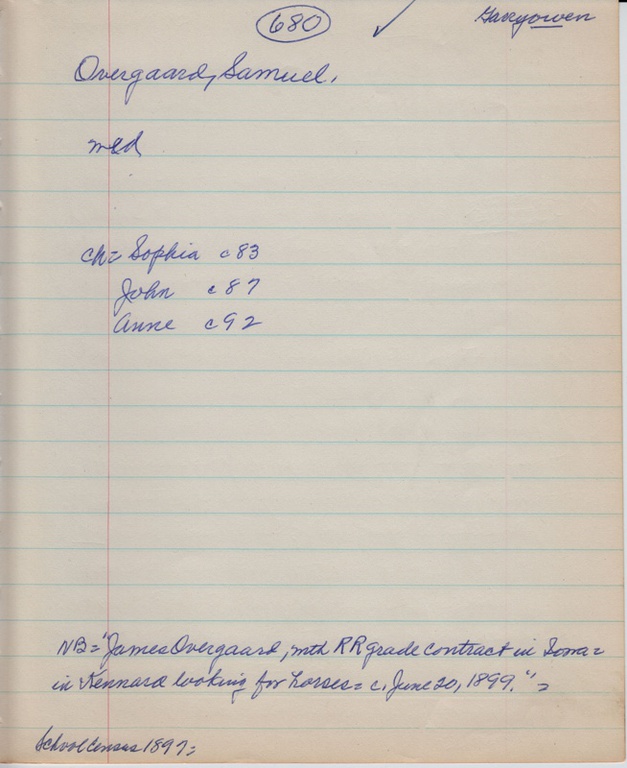 680 ✓ Garryowen
Overgaard, Samuel.
m&d
ch= Sophia c83
John c87
Anne c92
NB="James Overgaard, mth RR grade contract in Iowa=
in Kennard looking for horses= c. June 20, 1899."=
School Census 1897=